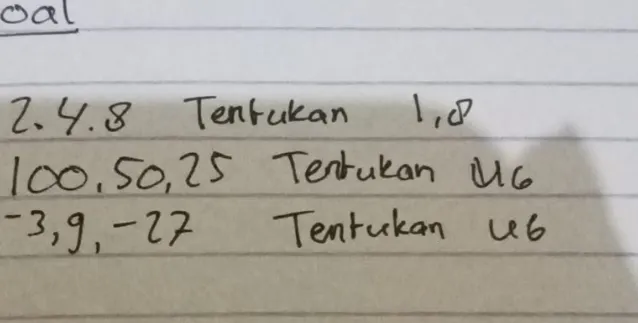 oal
2.4.8 Tentukan 1,8
100,50,25 Tentukan U6
-3,9,-27 Tentukan U6